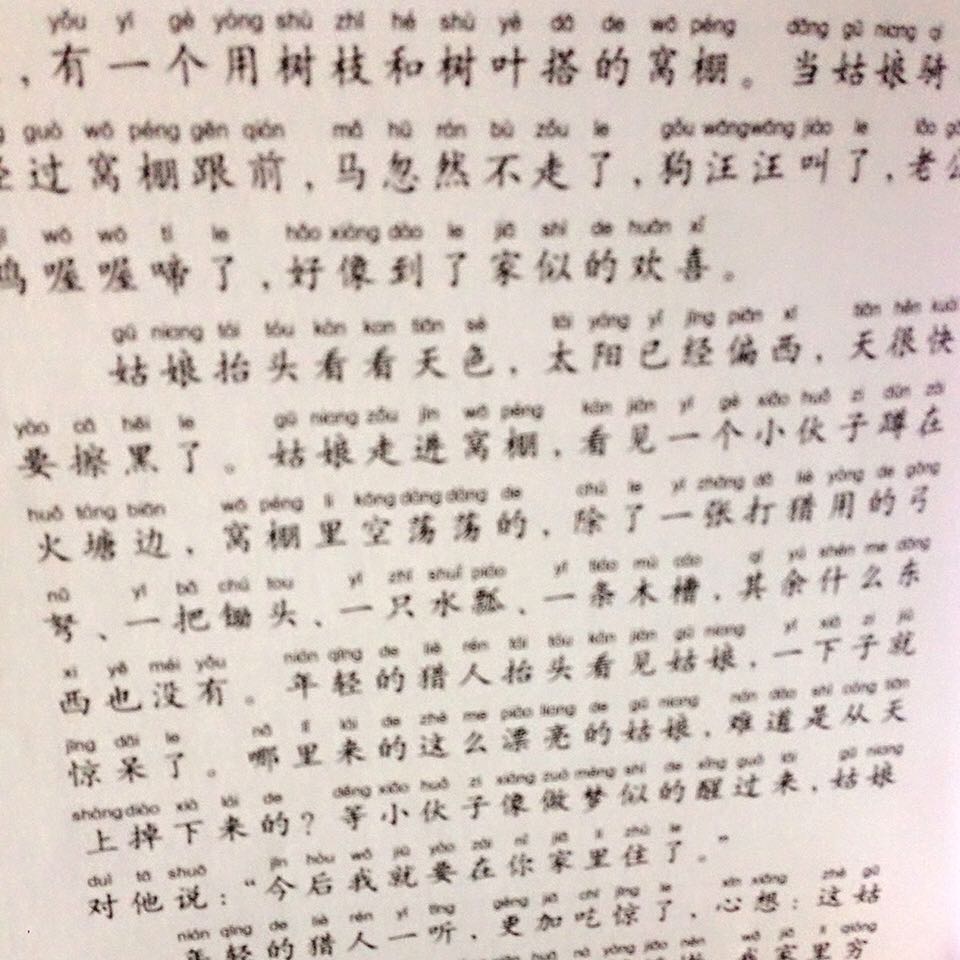 yǒu yī gè yòng shù zhī hé shù yè dā de wō péng dāng gū niang qí
，有一个用树枝和树叶搭的窝棚。当姑娘骑
guò wō péng gēn qián mǎ hū rán bù zǒu le gǒu wāngwāng jiào le lǎo
经过窝棚跟前，马忽然不走了，狗汪汪叫了，老公
wō wō tí le hǎo xiàng dào le jiā shì de huān xǐ
鸡喔喔啼了，好像到了家似的欢喜。
gū niang tái tóu kàn kan tiān sè tài yáng yǐ jīng piān xī tiān hěn kuài
姑娘抬头看看天色，太阳已经偏西，天很快
yào cā hēi le gū niang zǒu jìn wō péng kàn jiàn yí gè xiǎo huǒ zi dūn zài
要擦黑了。姑娘走进窝棚，看见一个小伙子蹲在
huǒ táng biān wō péng li kōng dàng dàng de chú le yì zhāng dǎ liè yòng de gōng
火塘边，窝棚里空荡荡的，除了一张打猎用的弓
nǔ yì bǎ chú tou yì zhī shuǐ piáo yì tiáo mù cáo qí yú shén me dōng
弩、一把锄头、一只水瓢、一条木槽，其余什么东
xi yě méi yǒu nián qīng de liè rén tái tóu kàn jiàn gū niang yí xià zi jiù
西也没有。年轻的猎人抬头看见姑娘，一下子就
jīng dāi le nǎ lǐ lái de zhè me piào liang de gū niang nán dào shì cóng tiān
惊呆了。哪里来的这么漂亮的姑娘，难道是从天
shàng diào xià lái de děng xiǎo huǒ zi xiàng zuò mèng shì de xǐng guò lái gū niang
上掉下来的？等小伙子像做梦似的醒过来，姑娘
duì tā shuō jīn hòu wǒ jiù yào zài nǐ jiā li zhù le
对他说：“今后我就要在你家里住了。”
nián qīng de liè rén yì tīng gèng jiā chī jīng le xīn xiǎng zhè gū
年轻的猎人一听，更加吃惊了，心想：这姑
wǒ jiā li qióng
我家里穷